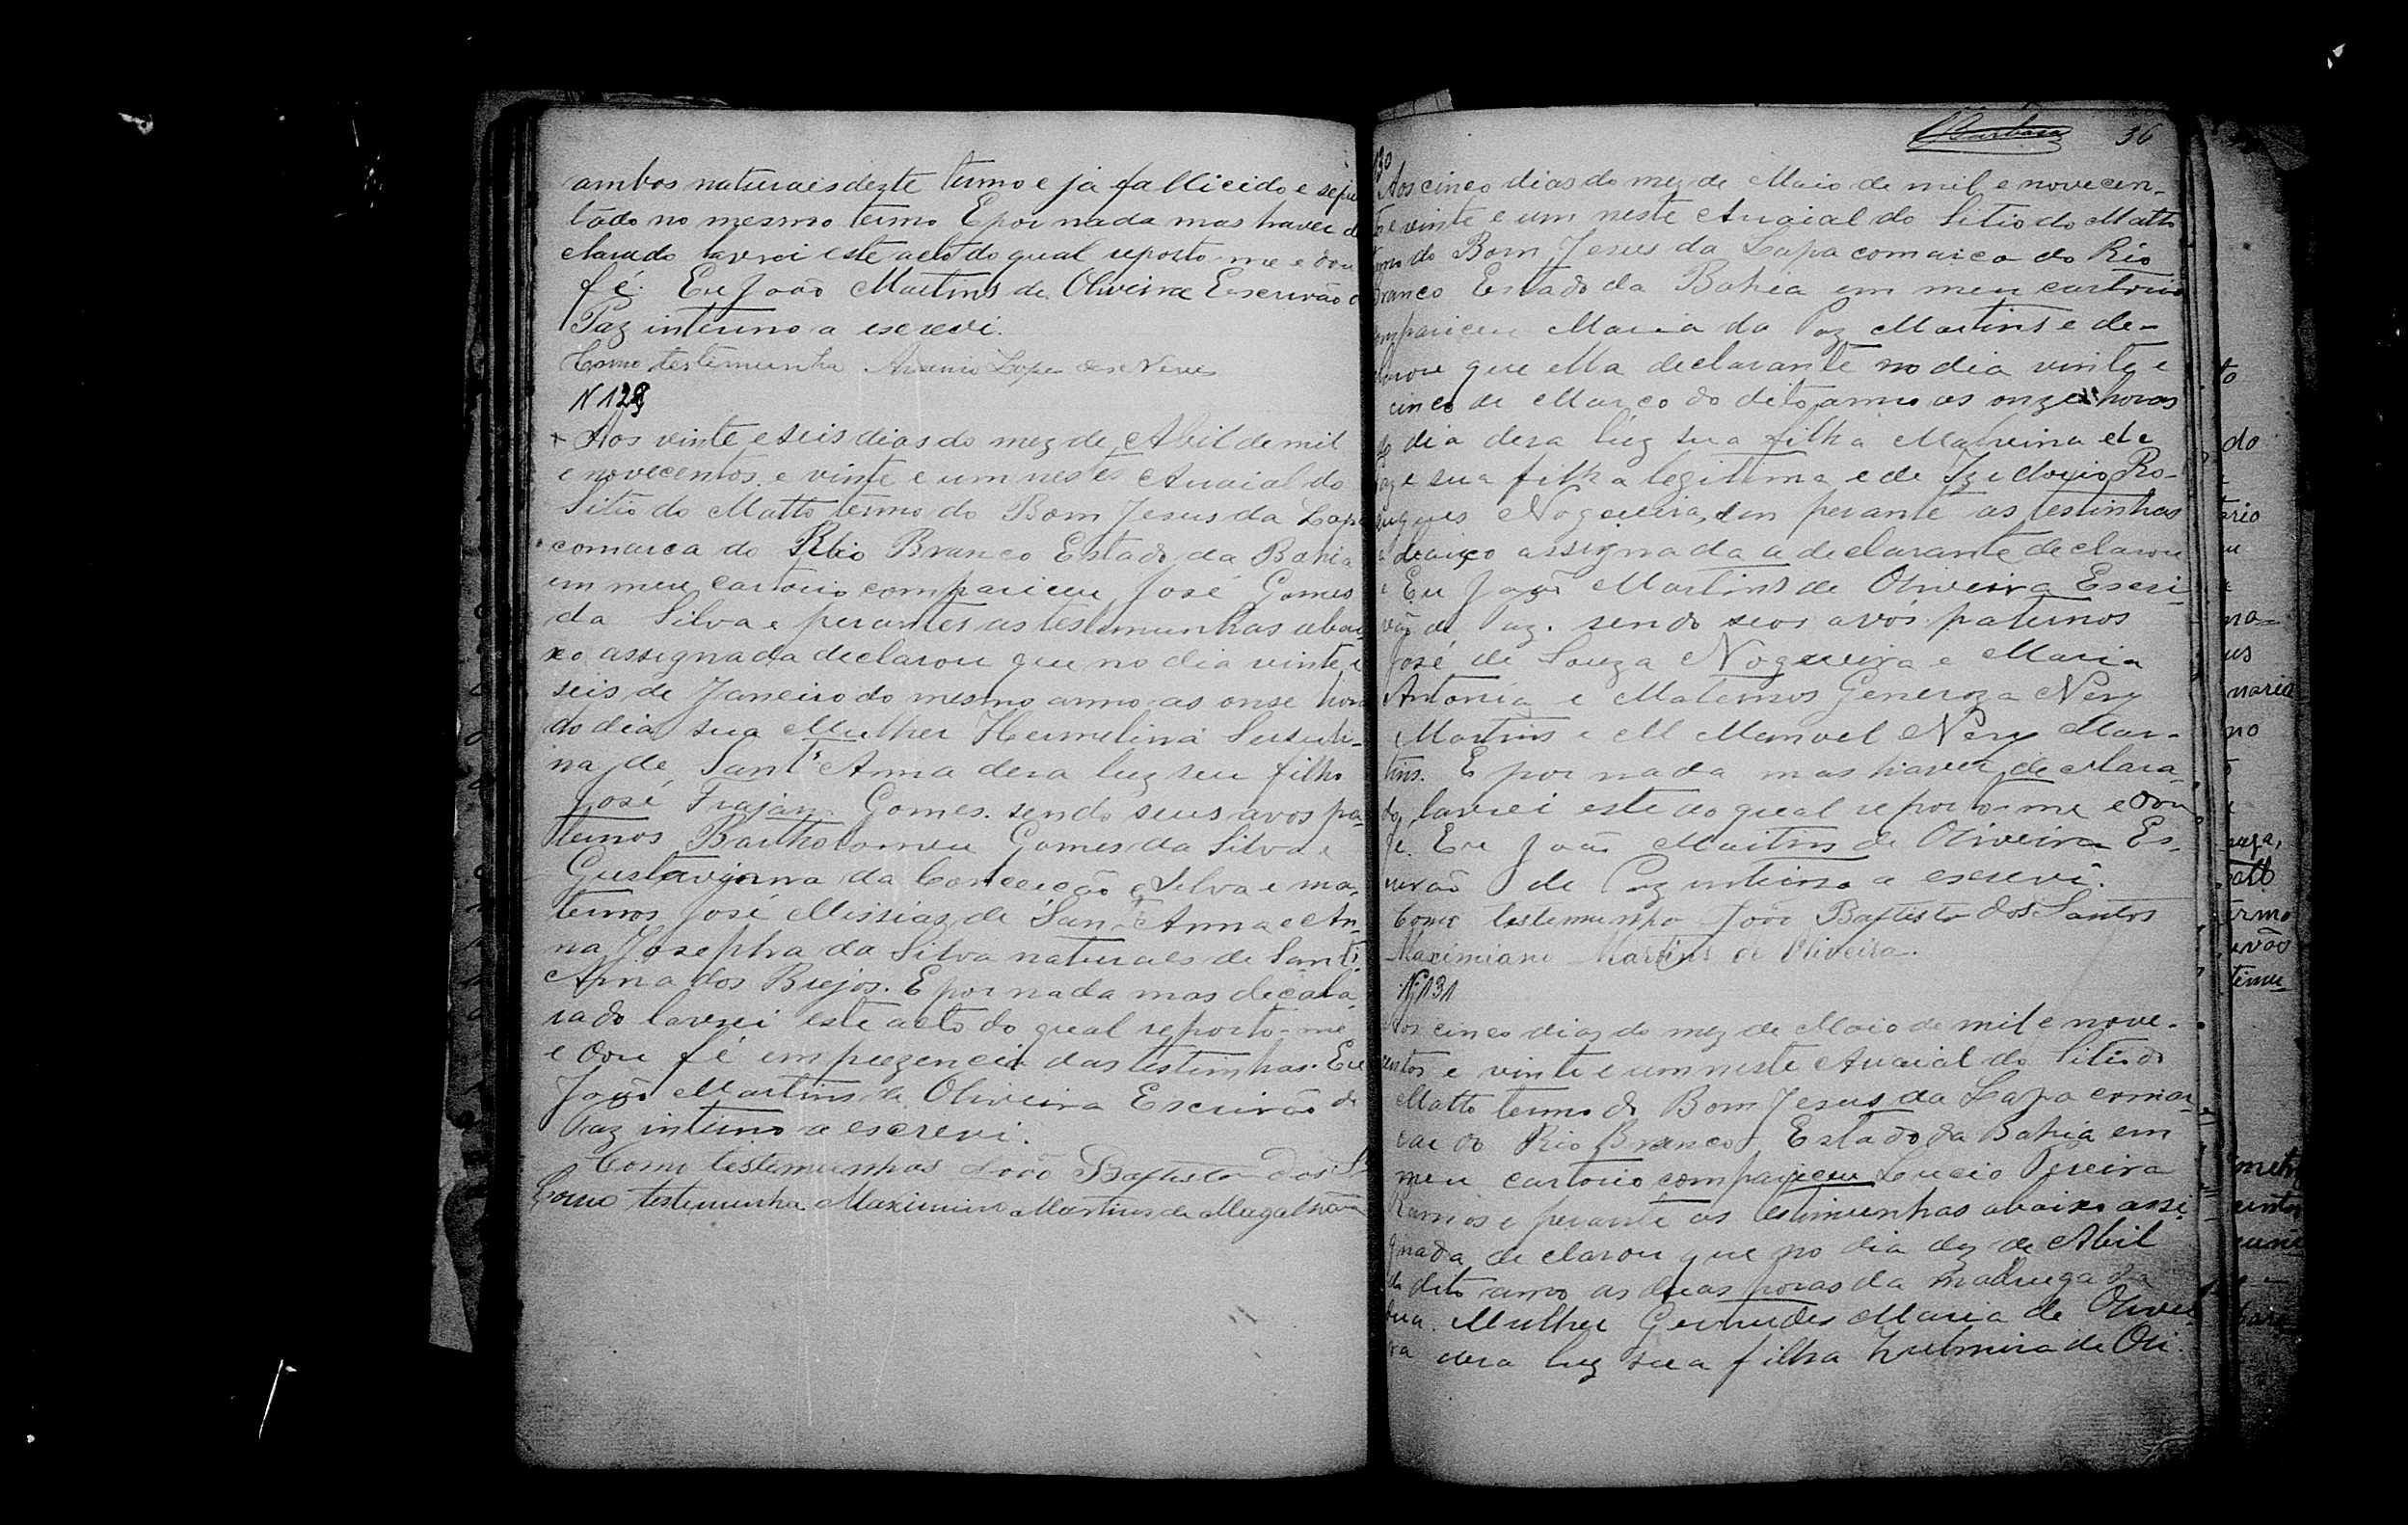 ambos naturaes dezte termo e já fallicido e sepu
tado no mesmo termo E por nada mas haver de
clarado lavrei este acto do qual reporto-me e dou
fé. Eu João Martins de Oliveira Escrivão d
Paz interino a escrevi.
Como testemunha Lopes das Neves
N 129
Aos vinte e seis dias do mez de Abil de mil
e novecentos e vinte e um neste Auaial do
Sitio do Matto termo do Bom Jesus da Lapa
comarca do Rio Branco Estado da Bahia
em meu cartorio compariceu José Gomes
da Silva e perantes as testemunhas abai
xo assignada declarou que no dia vinte e
seis de Janeiro do mesmo anno as onse hora
do dia sua Mulher Hermelina
na de Sant'Anna dera luz seu filho
José Trajano Gomes. sendo seus avos pa-
ternos Bartholomeu Gomes da Silva e
da Conceição e Silva e ma-
ternos José Missias de San-Anna e An-
na Josepha da Silva naturaes de Sant'
Anna dos Brejos. E por nada mas decala-
rado lavrei este acto do qual reporto-me
e dou fé em prezencia das testinhas. Eu
João Martins de Oliveira Escrivão de
Paz interino a escrevi.
Como testemunhas João Baptista dos S
Como testemunha Maximino Martins de Magalhães
Barbosa 36
130
Aos cinco dias do mez de Maio de mil e novecen-
to e vinte e um neste Auaial do Sitio do Matto
termo do Bom Jesus da Lapa comarca do Rio
Branco Estado da Bahia em meu cartorio
compariceu Maria da Paz Martins e de-
clarou que ella declarante no dia vinte e
cinco de Março do dito anno as onze horas
do dia dera luz sua filha Malvina de
Paz e sua filha legitima e de Izidorio Ro-
drigues Nogueira, em perante as testinhas
abaixo assignada a declarante declarou
e Eu João Martins de Oliveira Escri-
vão de Paz. sendo seos avós paternos
José de Souza Nogueira e Maria
Antonia e Maternos Generoza Nery
Martins e M Manoel Nery Mar-
tins. E por nada mas haver de clara-
do lavrei este do qual reporto-me e dou
fé. Eu João Martins de Oliveira Es-
crivão de Paz interino a escrevi.
Como testemunha João Baptista dos Santos
Maximiano Martins de Oliveira.
N 131
Aos cinco dias do mez de Maio de mil e nove-
centos e vinte e um neste Auaial do Sitio do
Matto termo do Bom Jesus da Lapa comar-
cae do Rio Branco, Estado da Bahia em
meu cartorio compariceu Loucio Pereira
Ramos e perante as testimunhas abaixo assi-
gnada declarou que no dia dez de Abil
do dito anno as duas horas da madrugada
sua Mulher Gertrudes Maria de Olivei
ra dera luz sua filha Zulmira de Oli